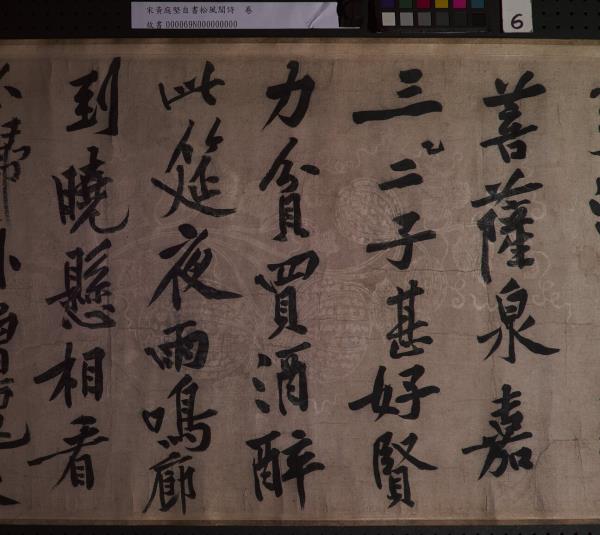 宋黃庭堅自書松風閣詩 卷
故書 000069N000000000
6
菩薩泉嘉
三二子甚好賢
力貧買酒醉
此筵夜雨鳴廊
到曉懸相看